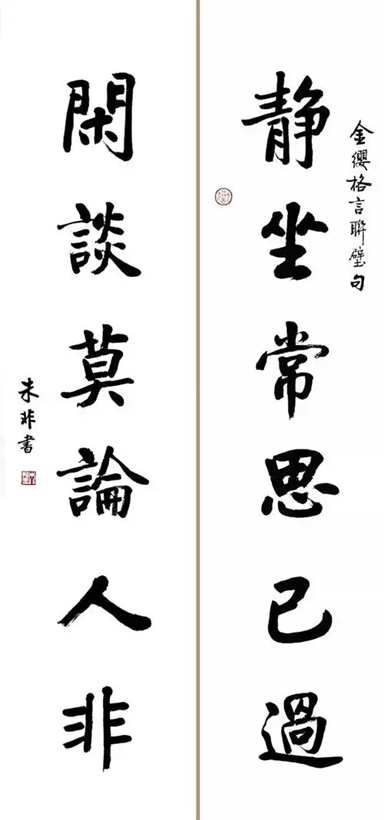 金纓格言聯璧句
静坐常思己過
閑談莫論人非
朱非書